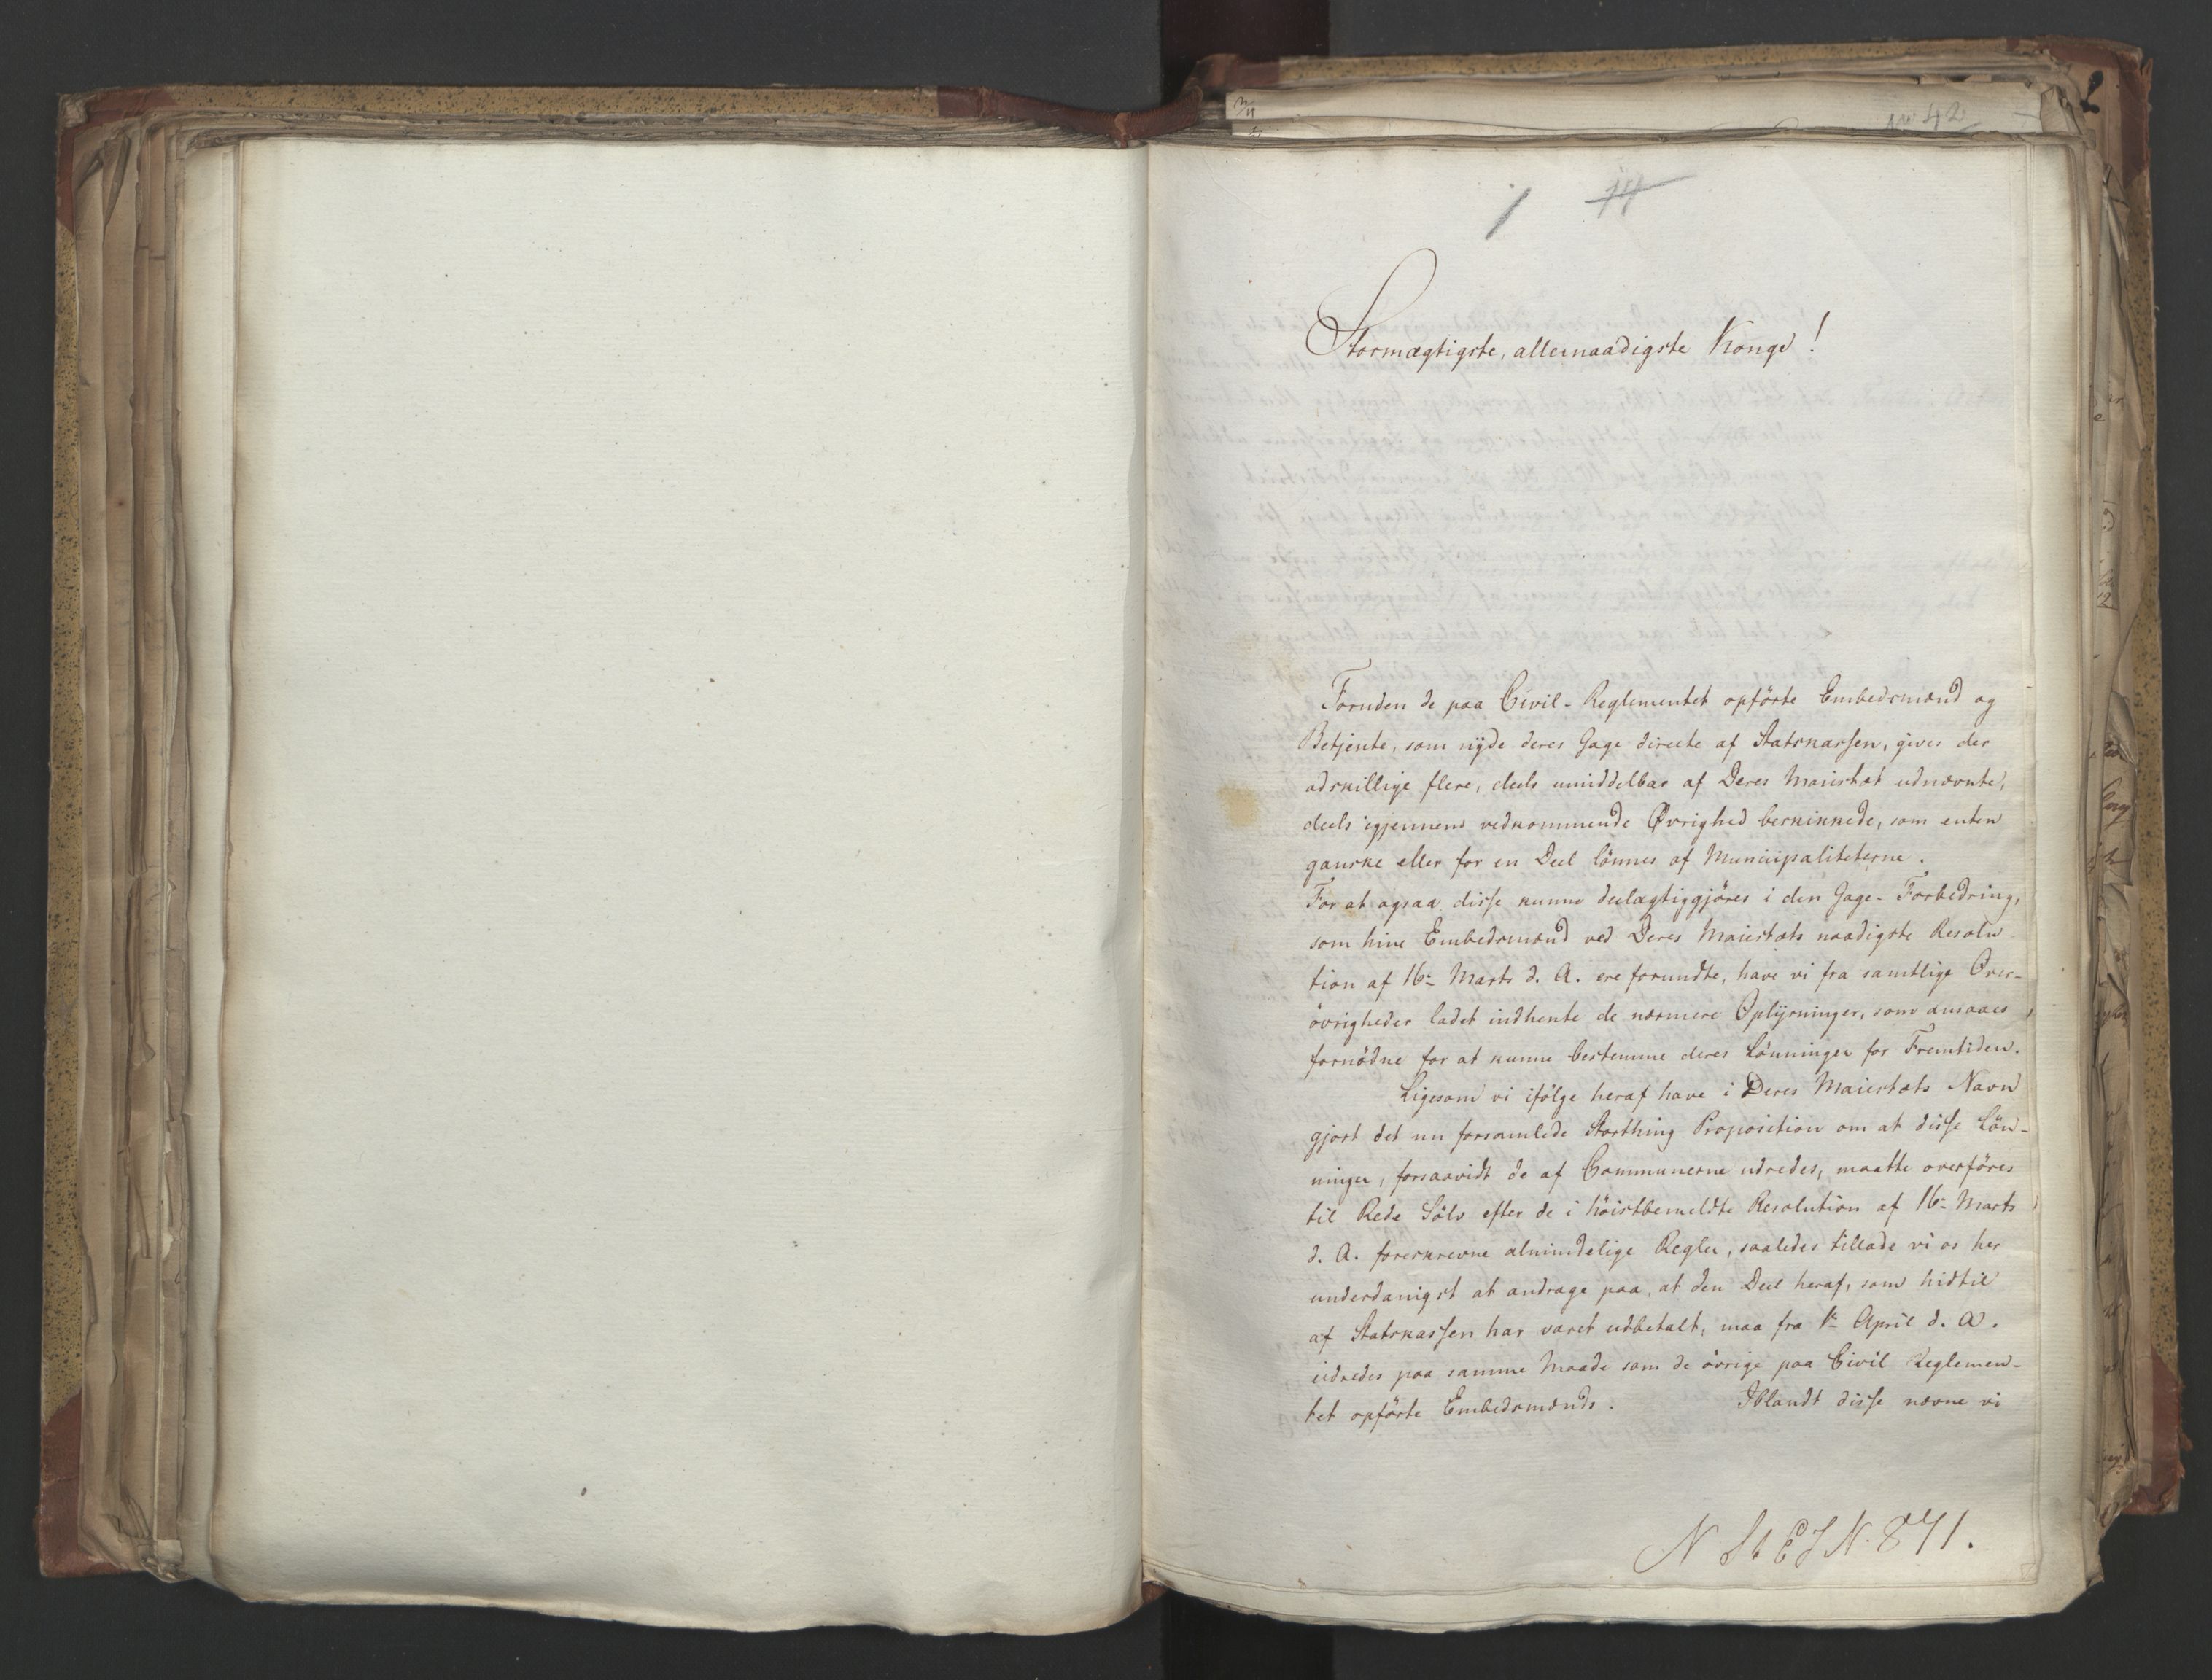 No 42
1
Stormægtigste, allernaadigste Konge!
Foruden de paa Civil-Reglementet opförte Embedsmænd og
Betjente, som nÿde deres Gage directe af Statskassen, gives der
adskillige flere, deels umiddelbar af Deres Maiestæt udnævnte,
deels igjennem vedkommende Øvrighed beskikkede, som enten
ganske eller for en Deel lönnes af Municipaliteterne.
For at ogsaa disse kunne deelagtiggjöres i den Gage-Forbedring,
som hine Embedsmænd ved Deres Maiestæts naadigste Resolu
tion af 16de Marts d. A. ere forundte, have vi fra samtlige Over-
övrigheder ladet indhente de nærmere Oplÿsninger, som ansaaes
fornödne for at kunne bestemme deres Lönninger for Fremtiden.
Ligesom vi ifölge heraf have i Deres Maiestæts Navn
gjort det nu forsamlede Storthing Proposition om at disse Lön-
ninger, forsaavidt de af Communerne udredes, maatte overföres
til Rede Sölv efter de i höistbemeldte Resolution af 16de Marts
d. A. foreskrevne almindelige Regler, saaledes tillade vi os her
underdanigst at andrage paa, at den Deel heraf, som hidtil
af Statskassen har været udbetalt, maa fra 1te April d. A.
udredes paa samme Maade som de övrige paa Civil Reglemen-
tet opförte Embedsmænds. Iblandt disse nævne vi
N 871.